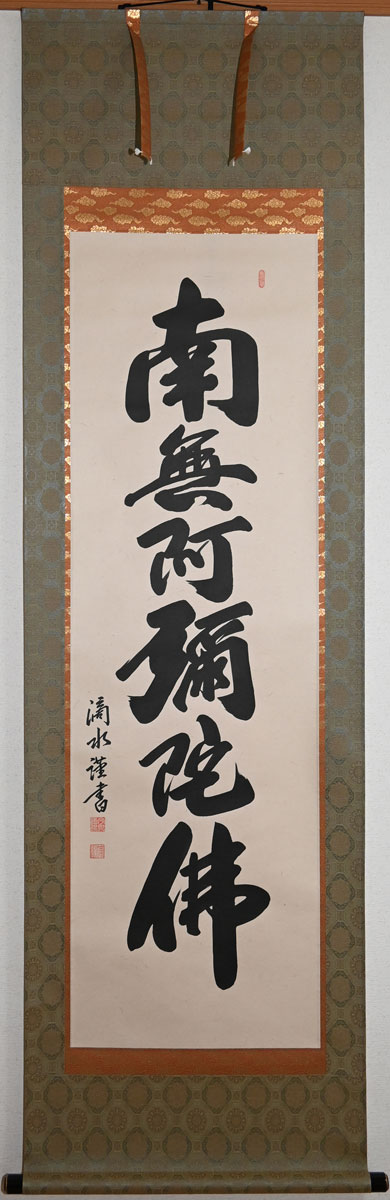 南無阿彌陀佛
滴水謹書